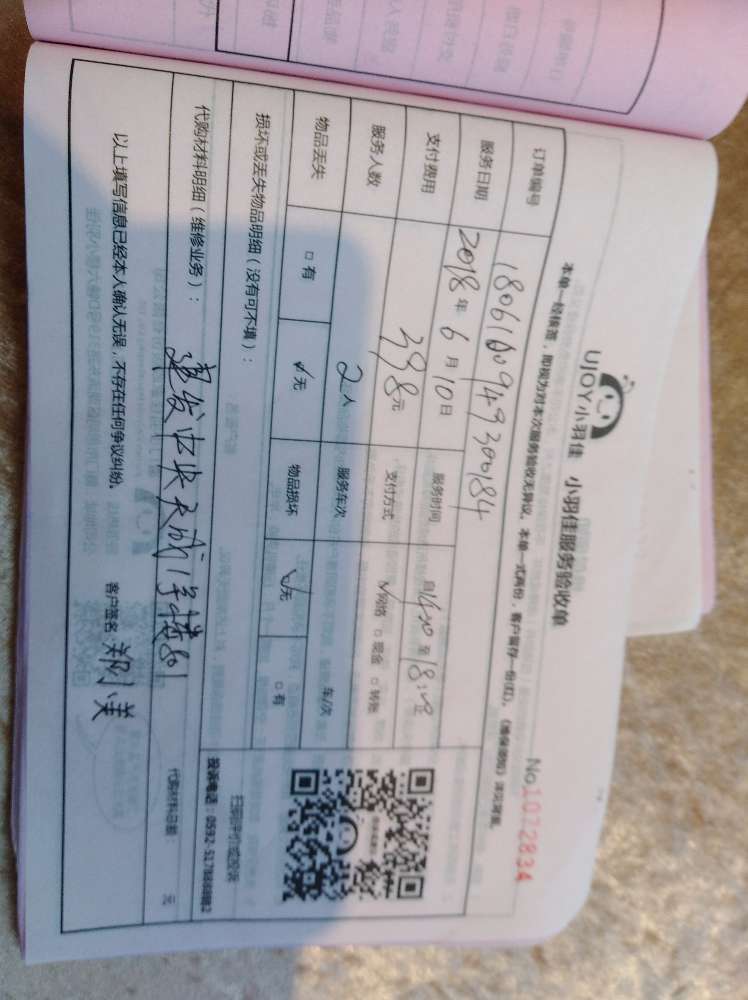 UJOY小羽佳 小羽佳服务验收单
No 1072834
本单一经核签，即视为对本次服务验收无异议。本单一式两份，客户留存一份(红)。
订单编号 1806100949300184
服务日期 2018年6月10日 服务时间 自14:00至18:00
支付费用 398元 支付方式 ☑网络 □现金 □转账
服务人数 2人 服务车次 车/次
物品丢失 □有 ☑无 物品损坏 ☑无 □有
扫码评价或投诉
投诉电话：0592-5178888转2
损坏或丢失物品明细（没有可不填）：
代购材料明细（维修业务）： 代购材料总额： 元
建发中央天成1号楼801
以上填写信息已经本人确认无误，不存在任何争议纠纷。 客户签名：郑美